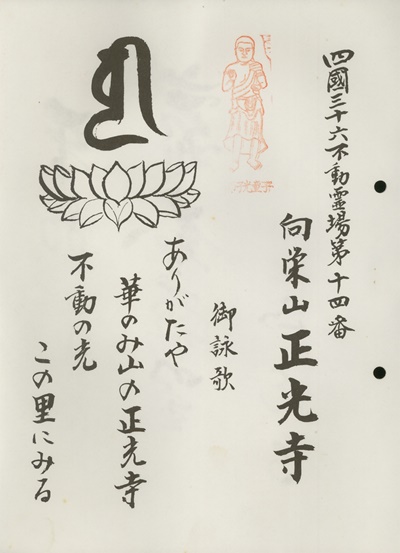 四國三十六不動霊場第十四番
向栄山正光寺
御詠歌
ありがたや
華のみ山の正光寺
不動の光
この里にみる